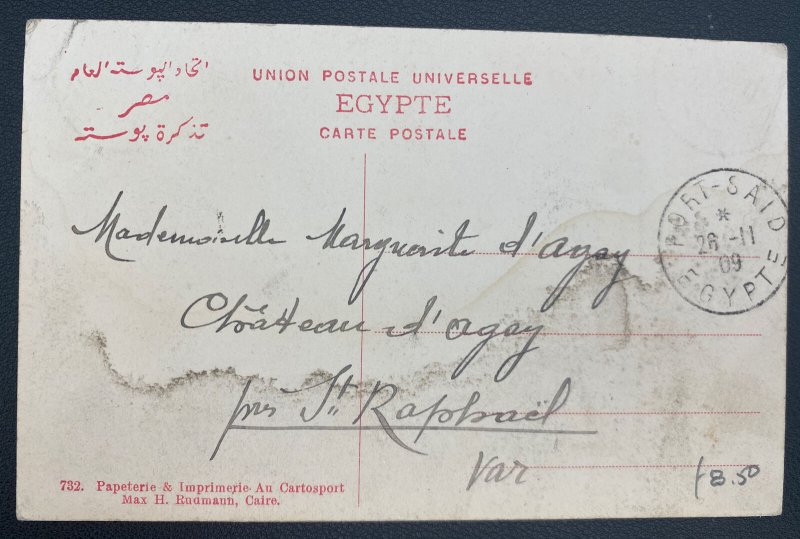 اتحاد البوسته العام
مصر
تذكرة بوسته
UNION POSTALE UNIVERSELLE
EGYPTE
CARTE POSTALE
PORT-SAID
*
28 -11
09
EGYPTE
Mademoiselle Marguerite d'Agay
Château d'agay
près St Raphaël
Var
8.50
732. Papeterie & Imprimerie Au Cartosport
Max H. Rudmann, Caire.